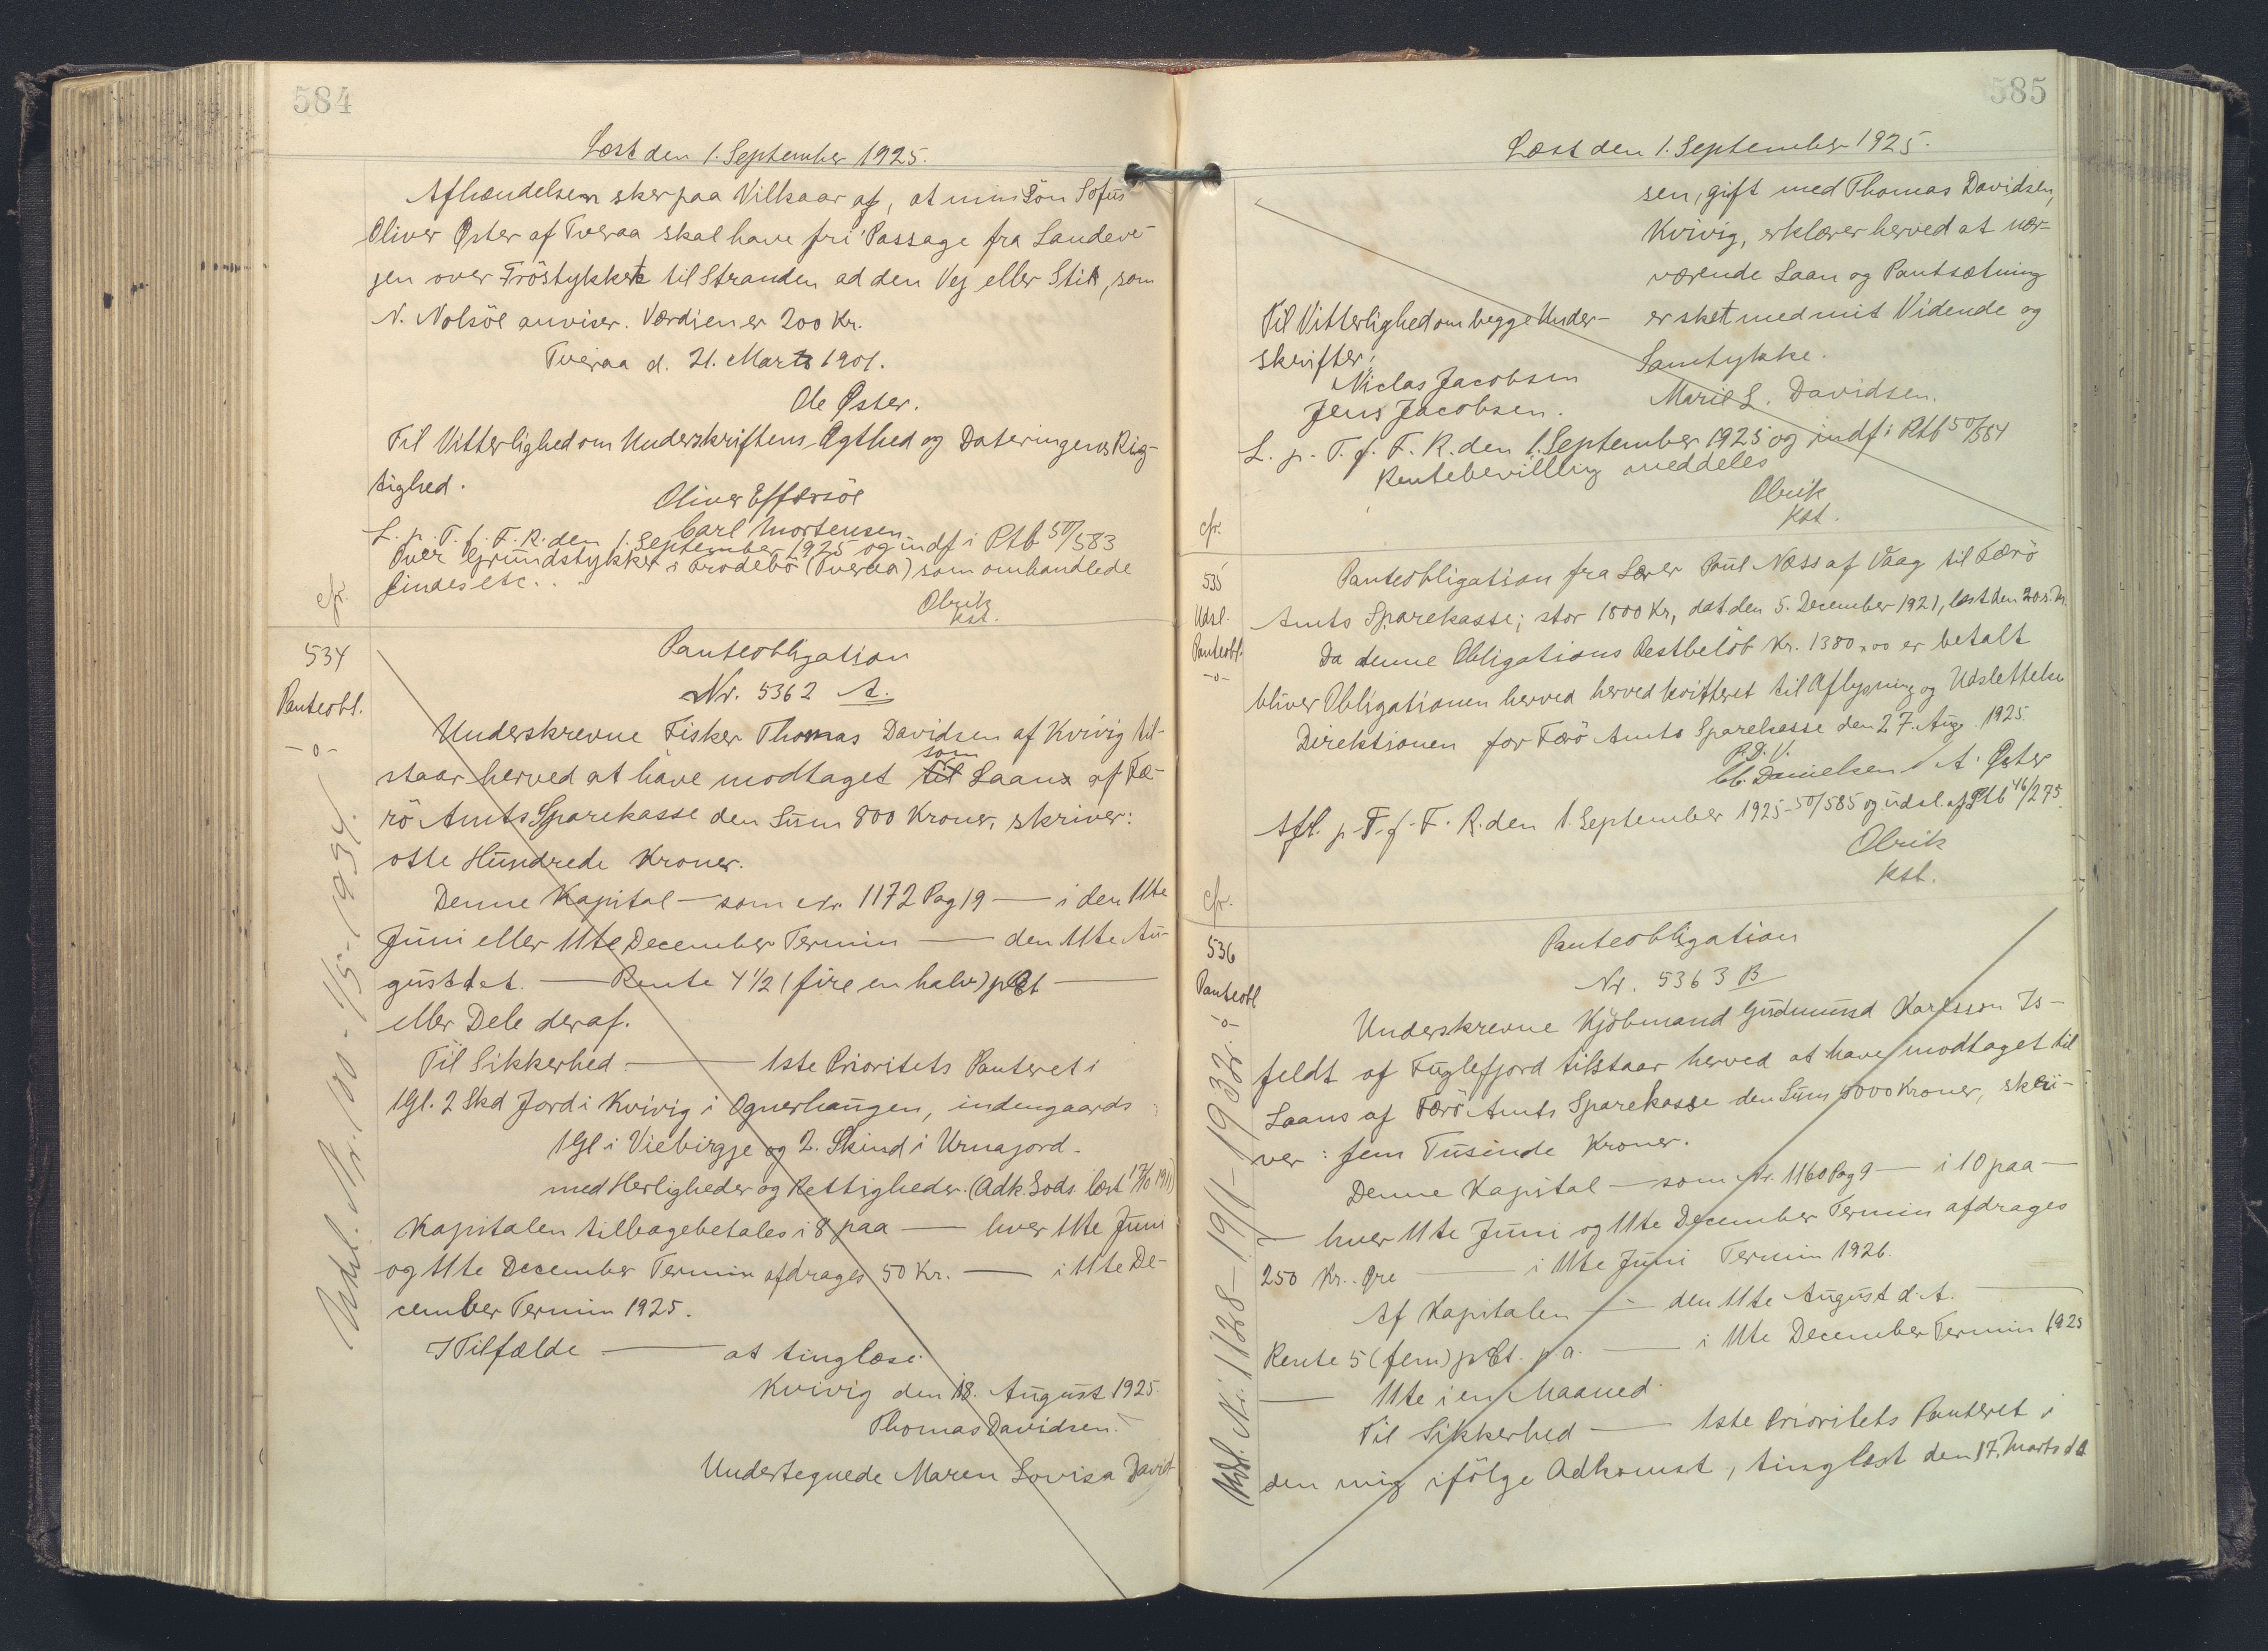 584
Læst den 1. September 1925.
Afhændelsen sker paa Vilkaar af, at min Sön Sofus
Oliver Øster af Tveraa skal have fri Passage fra Landeve-
jen over Tröstykket til Stranden ad den Vej eller Stik, som
N. Nolsöe anviser. Værdien er 200 Kr.
Tveraa d. 21. Marts 1901.
Ole Øster.
Til Vitterlighed om Underskriftens Ægthed og Dateringens Rig-
tighed.
Oliver Effersöe
Carl Mortensen.
L. p. T. f. F. R. den 1. September 1925 og indf i Ptb 50/583
Over Grundstykket i Frodebö (Tveraa) som omhandlede
findes etc..
cfr.
Olrik
kst.
534
Panteobl.
-o-
Panteobligation
Nr. 5362 A.
Underskrevne Fisker Thomas Davidsen af Kvivig til-
staar herved at have modtaget til som Laans af Fæ-
rö Amts Sparekasse den Sum 800 Kroner, skriver:
otte Hundrede Kroner.
Denne Kapital — som Nr. 1172 Pag 19 — i den 11te
Juni eller 11te December Termin — den 11te Au-
gust det. — Rente 4 1/2 (fire en halv) pCt —
eller Dele deraf.
Til Sikkerhed — 1ste Prioritets Panteret i
1 Gl. 2 Skd Jord i Kvivig i Ognerhaugen, indengaards
1 Gl i Viebirgje og 2. Skind i Urnajord.
med Herligheder og Rettigheder. (Adk. Dods. læst 17/10 1911)
Kapitalen tilbagebetales i 8 paa — hver 11te Juni
og 11te December Termin afdrages 50 Kr. — i 11te De-
cember Termin 1925.
I Tilfælde — at tinglæse.
Kvivig den 18. August 1925.
Thomas Davidsen.
Undertegnede Maren Lovisa David-
Udsl. Nr. 100 - 1/5 - 1934.
585
Læst den 1. September 1925.
sen, gift med Thomas Davidsen,
Kvivig, erklærer herved at nær-
værende Laan og Pantsætning
er sket med mit Vidende og
Samtykke.
Marie L. Davidsen.
Til Vitterlighed om begge Under-
skrifter:
Niclas Jacobsen
Jens Jacobsen.
L. p. T. f. F. R. den 1. September 1925 og indf i Ptb 50/584
Rentebevilling meddeles
Olrik
kst.
cfr.
535
Udsl.
Panteobl.
-o-
Panteobligation fra Lærer Poul Næss af Vaag til Færö
Amts Sparekasse; stor 1800 Kr, dat. den 5. December 1921, læst den 20. s. M.
Da denne Obligations Restbelöb Kr. 1380,00 er betalt
bliver Obligationen herved herved kvitteret til Aflysning og Udslettelse
Direktionen for Færö Amts Sparekasse den 27. Aug. 1925.
P. D. V.
C. C. Danielsen / A. Øster
Afl. p. T. f. F. R. den 1. September 1925 - 50/585 og udsl. af Ptb 46/275.
Olrik
kst.
cfr.
536
Panteobl
-o-
Panteobligation
Nr. 5363 B
Underskrevne Kjöbmand Gudmund Karlsson Is-
feldt af Fuglefjord tilstaar herved at have modtaget til
Laans af Færö Amts Sparekasse den Sum 5000 Kroner, skri-
ver: fem Tusinde Kroner.
Denne Kapital — som Nr. 1160 Pag 9 — i 10 paa —
— hver 11te Juni og 11te December Termin afdrages
250 Kr. Øre — i 11te Juni Termin 1926.
Af Kapitalen — den 11te August d. A. —
Rente 5 (fem) pCt. p. a. — i 11te December Termin 1925
— 11te i en Maaned.
Til Sikkerhed — 1ste Prioritets Panteret i
den mig ifölge Adkomst, tinglæst den 17. Marts d A
Udsl. Nr. 1128 - 19/1 - 1932.